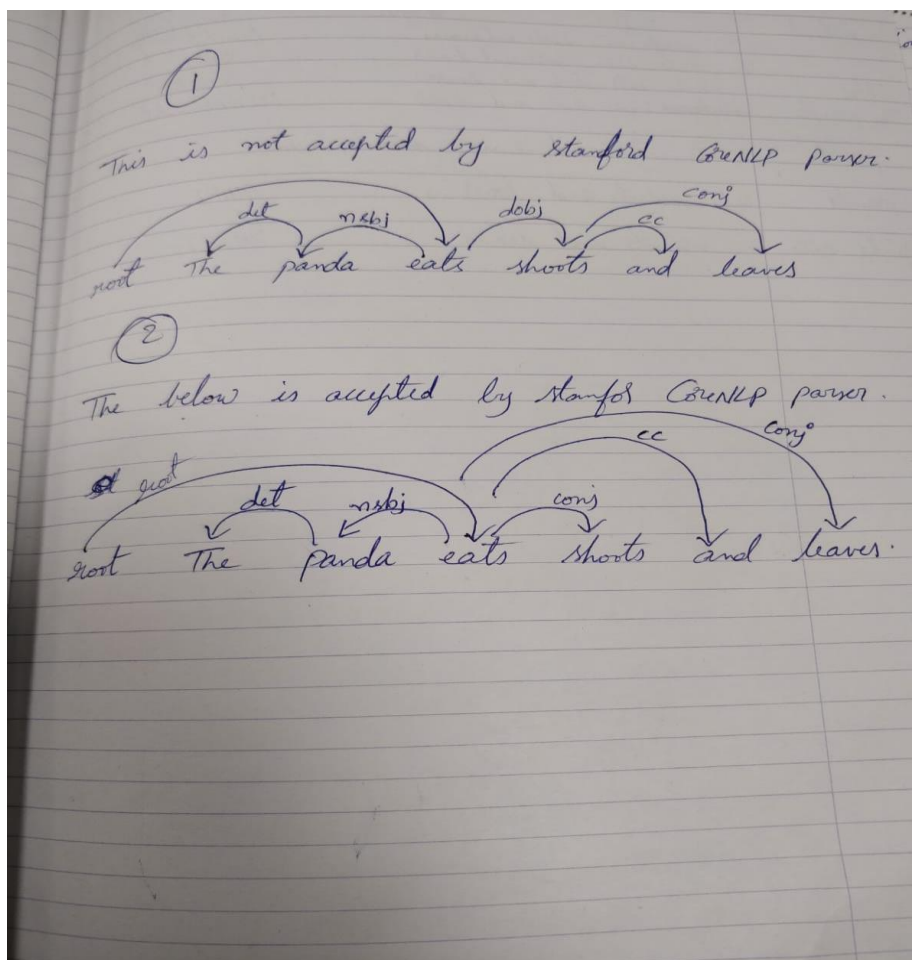 1
This is not accepted by stanford CoreNLP parser.
conj
det nsbj dobj cc
root The panda eats shoots and leaves
2
The below is accepted by stanfor CoreNLP parser.
cc conj
root
det nsbj conj
root The panda eats shoots and leaves.